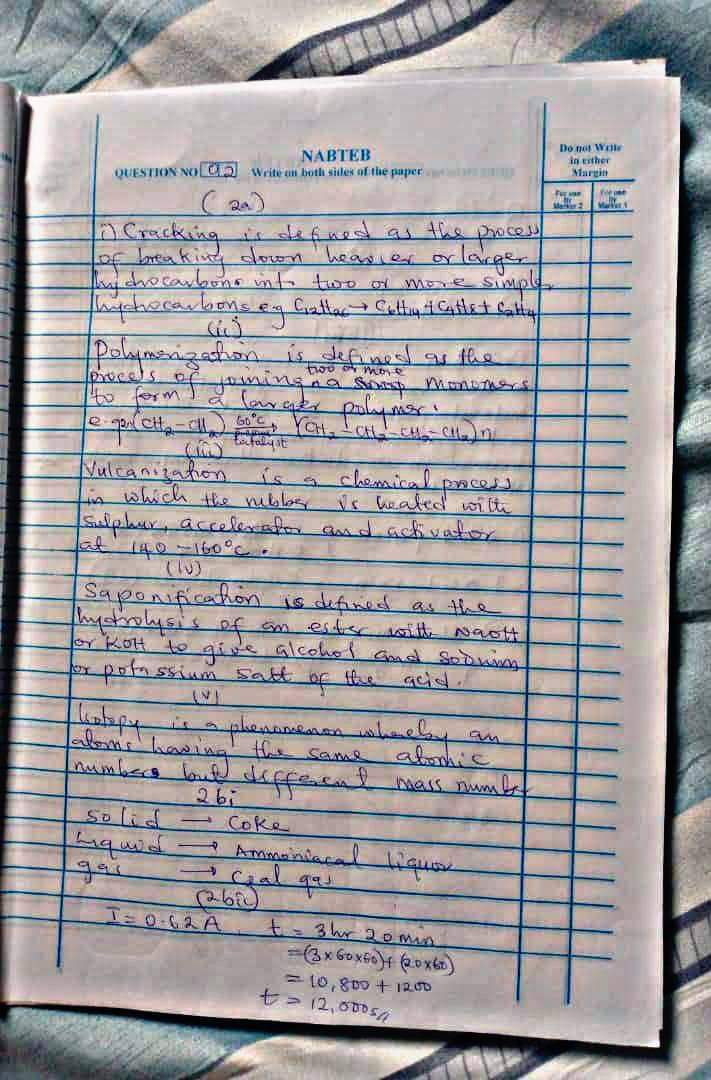 NABTEB
QUESTION NO 02 Write on both sides of the paper
Do not Write
in either
Margin
For use
By
Marker 2
For use
By
Marker 1
(2a)
i) Cracking is defined as the process
of breaking down heavier or larger
hydrocarbons into two or more simpler
hydrocarbons eg C12H26 → C6H14 + C4H8 + C2H4
(ii)
Polymerization is defined as the
process of joining two or more monomers
to form a larger polymer.
e.g n(CH2-CH2) 60°C Catalyst → (CH2-CH2-CH2-CH2)n
(iii)
Vulcanization is a chemical process
in which the rubber is heated with
sulphur, accelerator and activator
at 140-160°c.
(iv)
Saponification is defined as the
hydrolysis of an ester with NaOH
or KOH to give alcohol and sodium
or potassium salt of the acid.
(v)
Isotopy is a phenomenon whereby an
atoms having the same atomic
numbers but different mass number
2bi
solid → Coke
Liquid → Ammoniacal liquor
gas → Coal gas
(2bii)
I = 0.62A, t = 3hr 20min
= (3x60x60) + (20x60)
= 10,800 + 1200
t = 12,000s